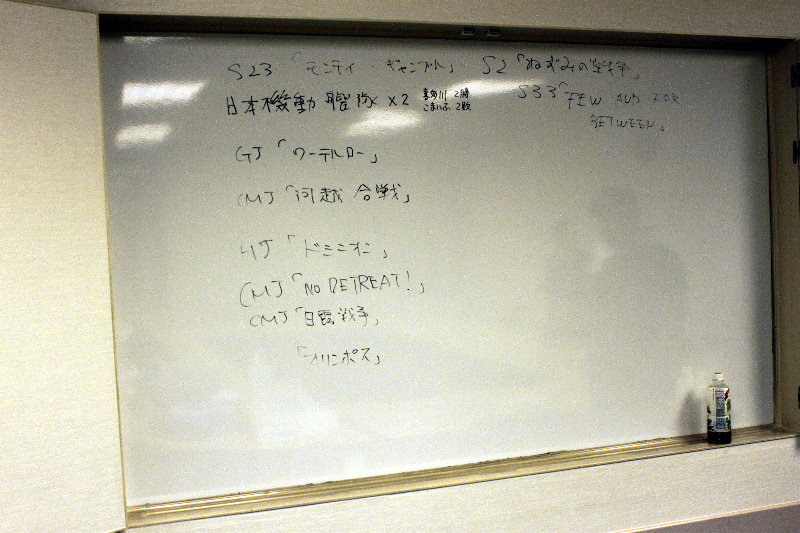 S23「モンティ・ギャンブル」 S2「ねずみの戦争」
日本機動 ×2 2勝 2敗
S33「FEW AND FAR
BETWEEN」
GJ「ワーテルロー」
CMJ「河越合戦」
HJ「ドミニオン」
CMJ「NO RETREAT!」
CMJ「日露戦争」
「オリンポス」